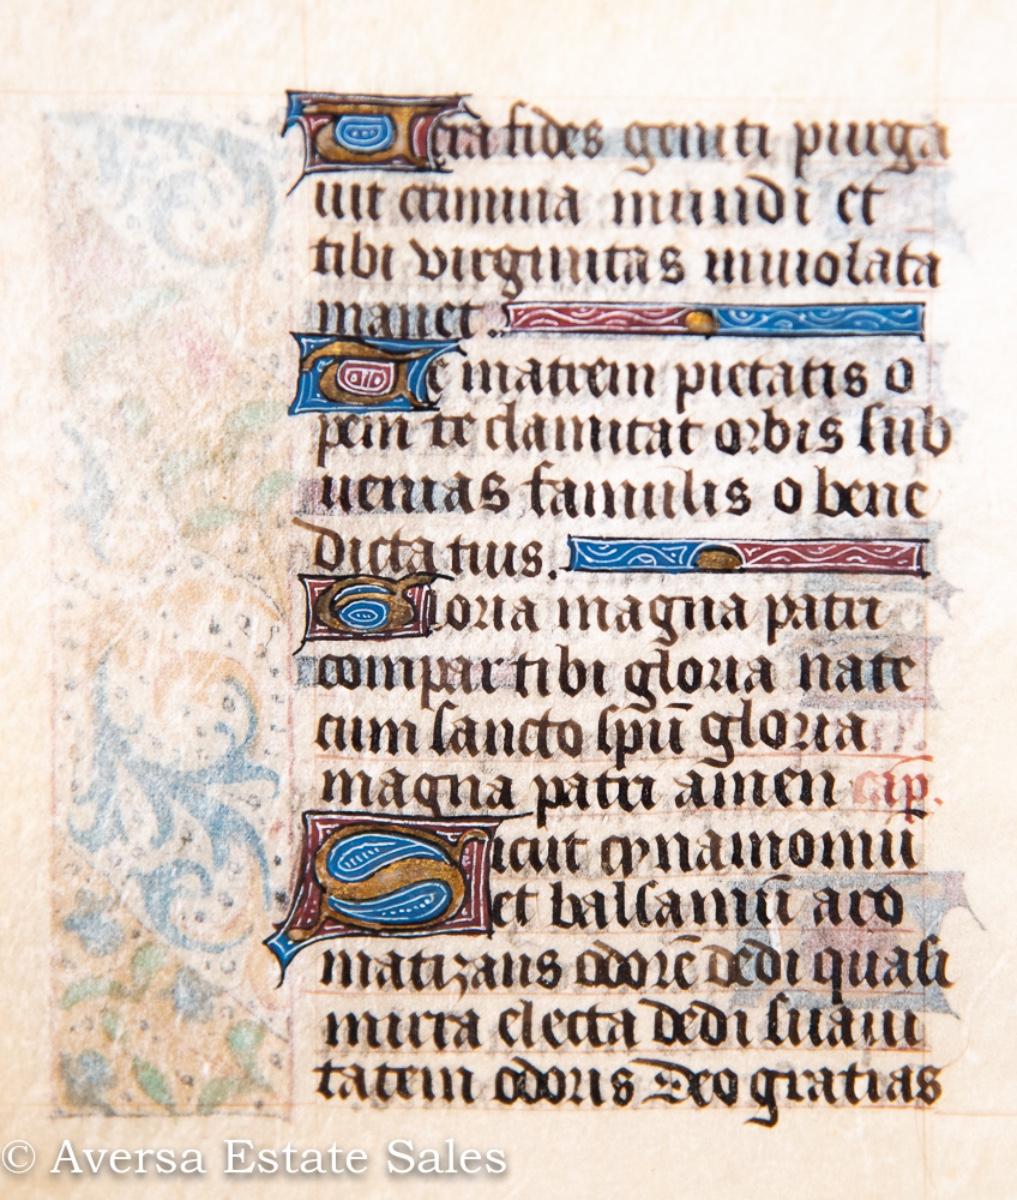 Vera fides geniti purga
uit crimina mundi et
tibi virginitas inuiolata
manet.
Te matrem pietatis o
pem te clamitat orbis sub
uenias famulis o bene
dicta tuis.
Gloria magna patri
compar tibi gloria nate
cum sancto spū gloria
magna patri amen cap̄.
Sicut cynamomū
et balsamū aro
matizans odorē dedi quasi
mirra electa dedi suaui
tatem odoris Deo gratias
© Aversa Estate Sales